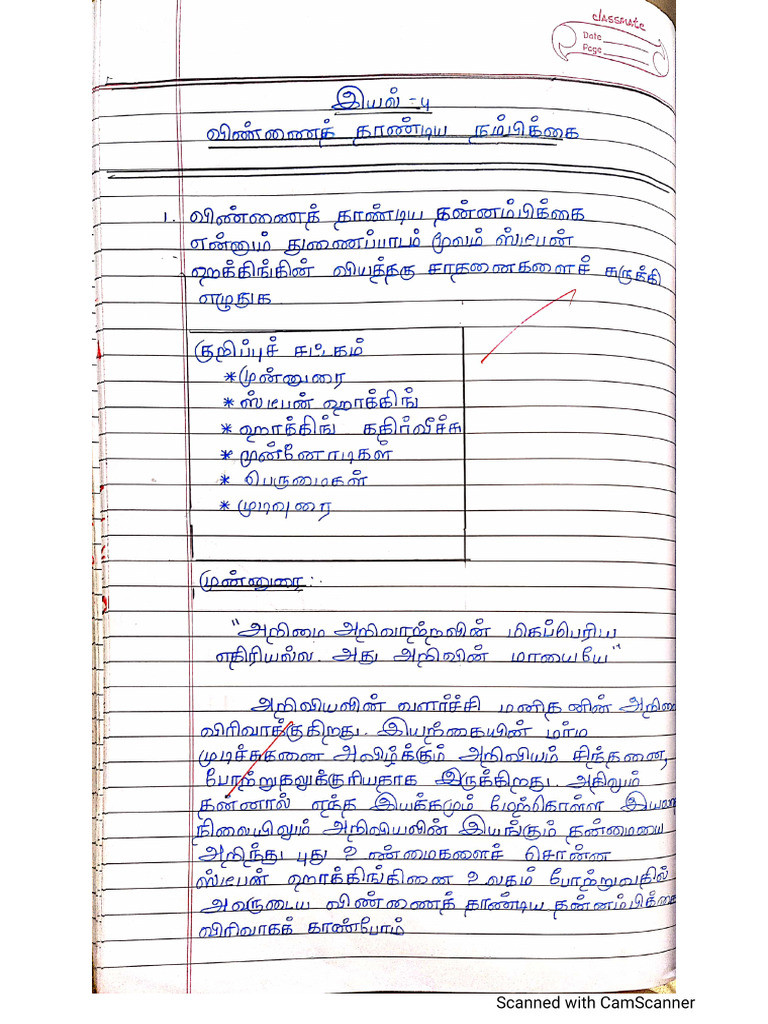 classmate
Date
Page
இயல் -4
விண்ணைத் தாண்டிய நம்பிக்கை
1. விண்ணைத் தாண்டிய தன்னம்பிக்கை
என்னும் துணைப்பாடம் மூலம் ஸ்டீபன்
ஹாக்கிங்கின் வியத்தகு சாதனைகளைச் சுருக்கி
எழுதுக
குறிப்புச் சட்டகம்
*முன்னுரை
*ஸ்டீபன் ஹாக்கிங்
*ஹாக்கிங் கதிர்வீச்சு
*முன்னோடிகள்
* பெருமைகள்
* முடிவுரை
முன்னுரை:-
"அறிமை அறிவாற்றலின் மிகப்பெரிய
எதிரியல்ல. அது அறிவின் மாயையே"
அறிவியலின் வளர்ச்சி மனிதனின்
விரிவாக்குகிறது. இயற்கையின் மர்ம
முடிச்சுகளை அவிழ்க்கும் அறிவியல் சிந்தனை,
போற்றுதலுக்குரியதாக இருக்கிறது. அதிலும்
தன்னால் எந்த இயக்கமும் மேற்கொள்ள
நிலையிலும் அறிவியலின் இயங்கும் தன்மையை
அறிந்து புது உண்மைகளைச் சொன்ன
ஸ்டீபன் ஹாக்கிங்கினை உலகம் போற்றுவதில்
அவருடைய விண்ணைத் தாண்டிய தன்னம்பிக்கை
விரிவாகக் காண்போம்
Scanned with CamScanner